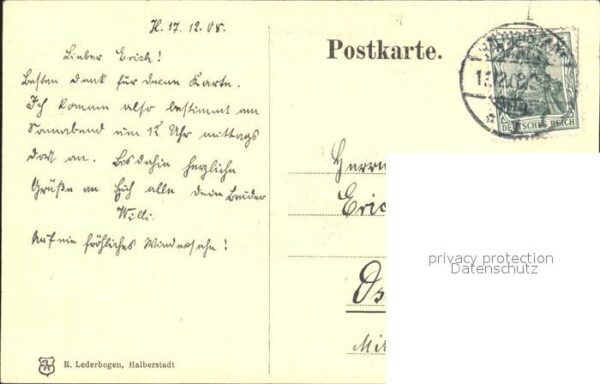 H. 17. 12. 08.
Lieber Erich!
Besten Dank für Deine Karte.
Ich komme also bestimmt am
Sonnabend um 12 Uhr mittags
dort an. Bis dahin herzliche
Grüße an Euch alle Dein Bruder
Willi.
Auf ein fröhliches Wiedersehn!
Postkarte.
DEUTSCHES REICH
Herrn
Eric
Os
Mit
privacy protection
Datenschutz
R. Lederbogen, Halberstadt